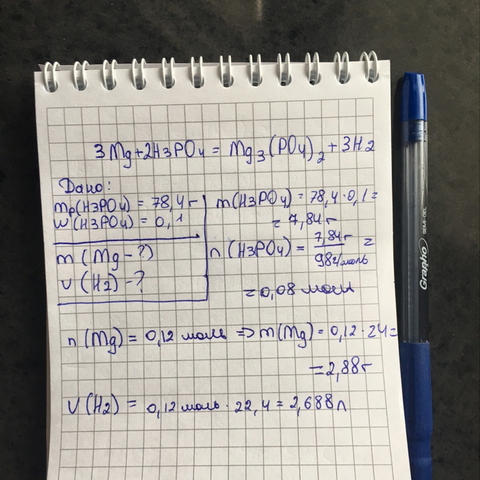 3Mg+2H3PO4 = Mg3(PO4)2+3H2
Дано:
mр(H3PO4) = 78,4г
w(H3PO4) = 0,1
m(Mg-?)
v(H2)-?
m(H3PO4) = 78,4·0,1=
= 7,84г
n(H3PO4) = 7,84г / 98г/моль =
= 0,08 моль
n(Mg) = 0,12 моль => m(Mg) = 0,12·24=
= 2,88г
V(H2) = 0,12 моль·22,4 = 2,688л
Granho